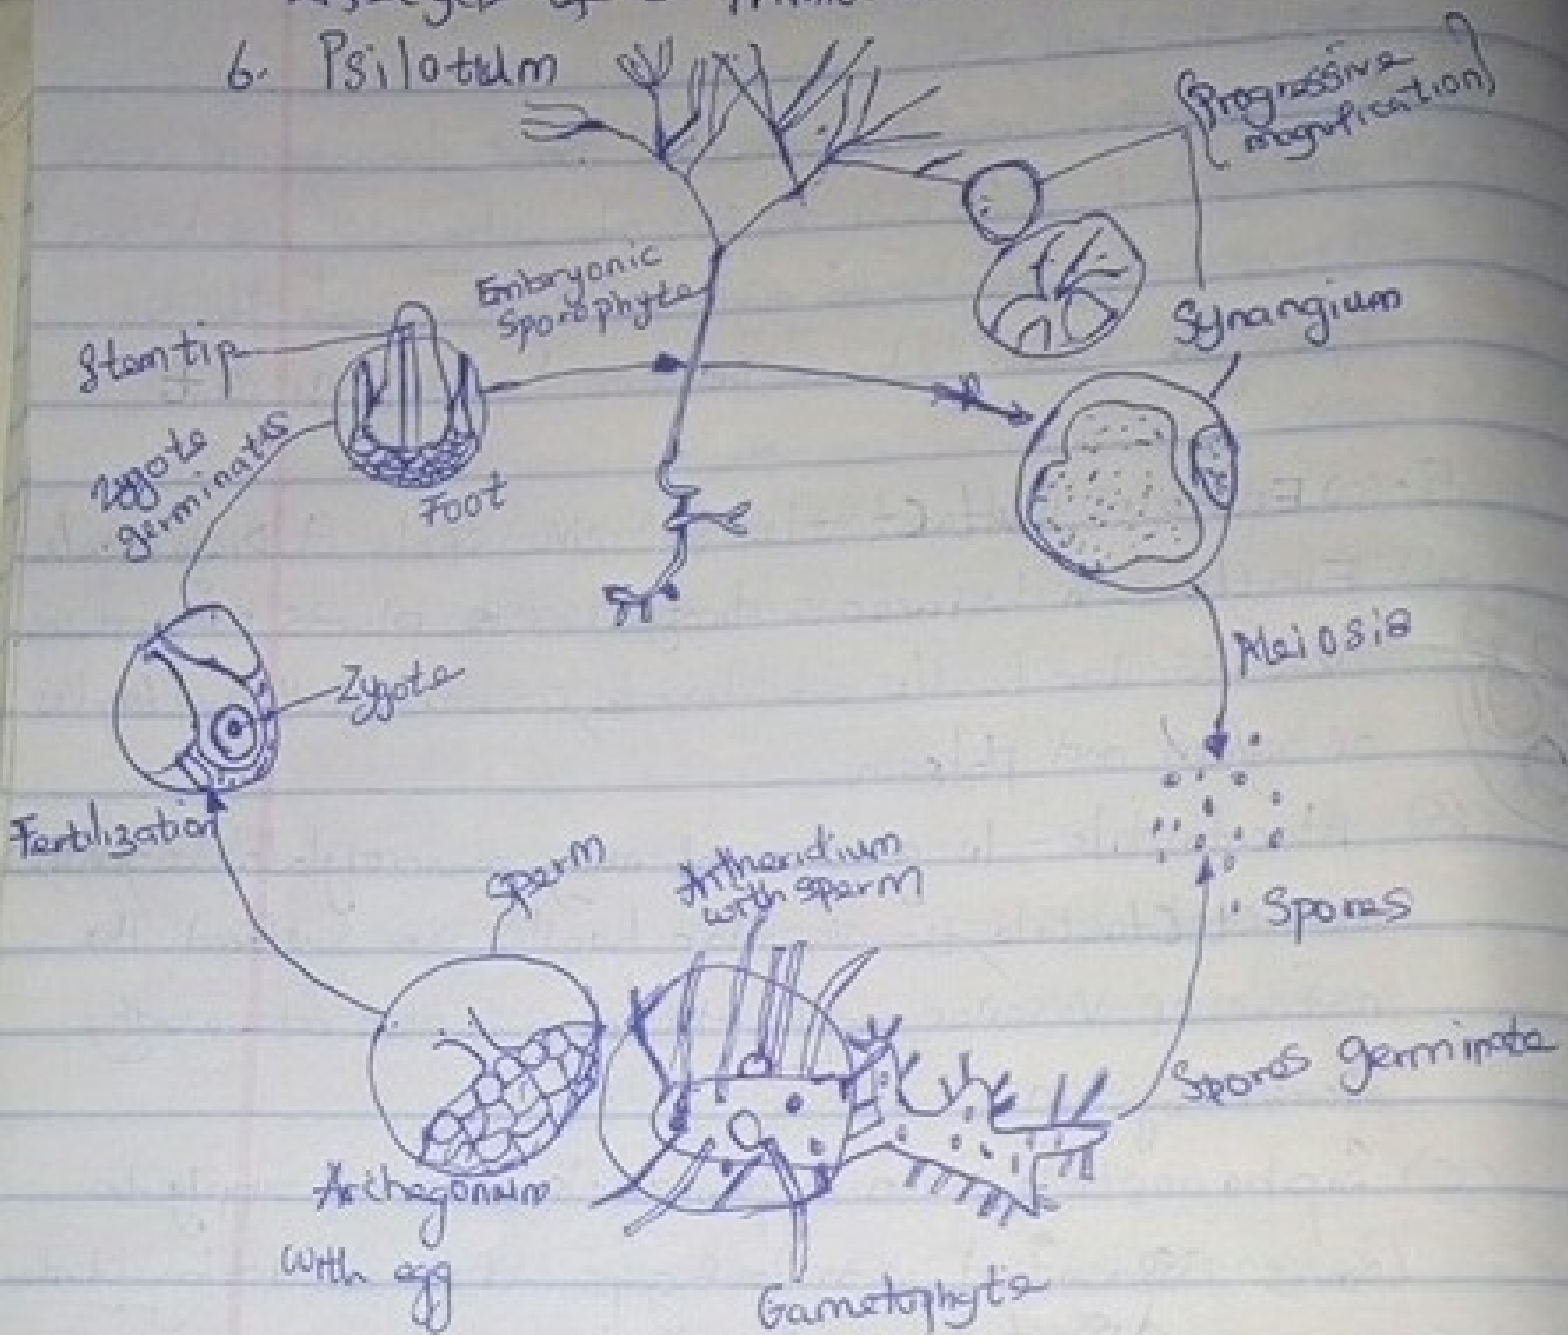 6. Psilotum
(Progressive
magnification)
Embryonic
Sporophyte
Synangium
Stem tip
Zygote
germinates
Foot
Meiosis
Zygote
Fertilization
Sperm
Antheridium
with sperm
Spores
Spores germinate
Archegonium
with egg
Gametophyte